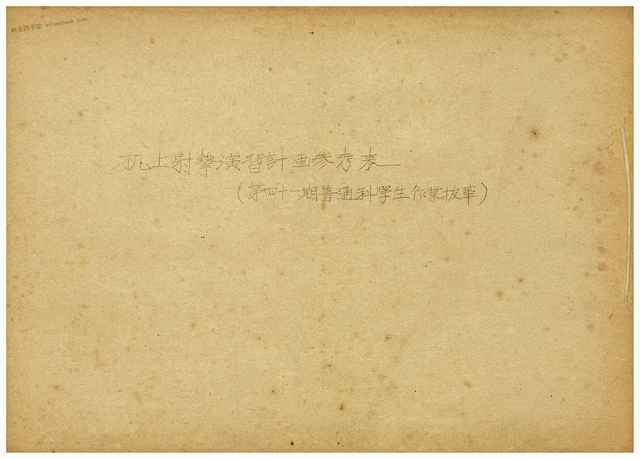 机上射擊演習計画参考表
(第四十一期普通科学生作業抜萃)